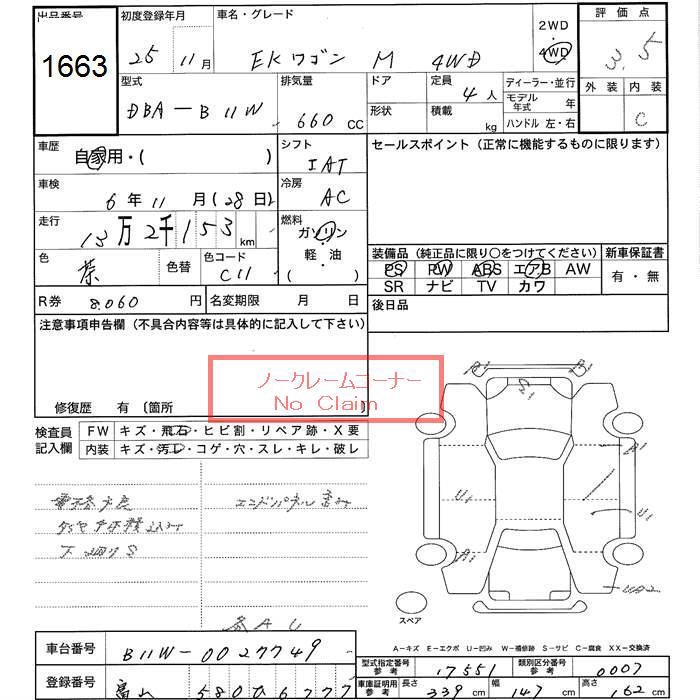 出品番号 初度登録年月 車名・グレード 2WD 評価点
1663 25 11月 EKワゴン M 4WD 4WD 3.5
型式 排気量 ドア 定員 ディーラー・並行 外装 内装
DBA-B11W 660cc 4人 モデル年式 年 C
形状 積載 kg ハンドル 左・右
車歴 自家用・( ) シフト IAT セールスポイント（正常に機能するものに限ります）
車検 6年11月(28日) 冷房 AC
走行 13万2千153km 燃料 ガソリン
軽・油
( )
色 茶 色替 色コード C11
装備品（純正品に限り○をつけてください） 新車保証書
PS PW ABS エアB AW 有・無
SR ナビ TV カワ
R券 8.060円 名変期限 月 日 後日品
注意事項申告欄（不具合内容等は具体的に記入して下さい）
ノークレームコーナー
No Claim
修復歴 有〔箇所 〕
検査員記入欄 FW キズ・飛石・ヒビ割・リペア跡・X要
内装 キズ・汚レ・コゲ・穴・スレ・キレ・破レ
エンドパネル歪み
下廻りS
U1 U1 A1
スペア
A－キズ E－エクボ U－凹み W－補修跡 S－サビ C－腐食 XX－交換済
車台番号 B11W-0027749
型式指定番号 参考 17551 類別区分番号 参考 0007
登録番号 富山 580 ひ 6777
車庫証明用 参考 長さ 339cm 幅 147cm 高さ 162cm